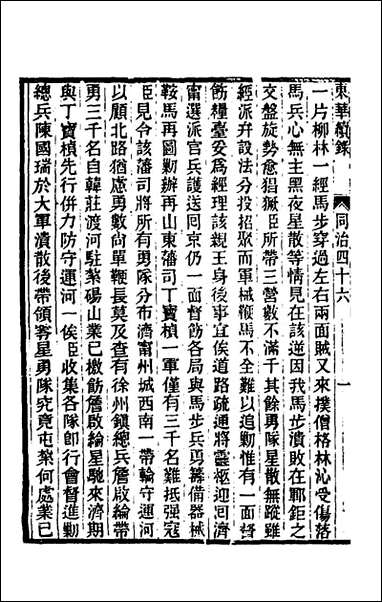 東華續錄　同治四十六　一
一片柳林一經馬步穿過左右兩面賊又來撲僧格林沁受傷落
馬兵心無主黑夜星散等情見在該逆因我馬步潰敗在鄆鉅之
交盤旋勢愈猖獗臣所帶三營數不滿千其餘勇隊星散無蹤雖
經派弁設法分投招聚而軍械鞍馬不全難以追勦惟有一面督
飭糧臺妥為經理該親王身後事宜俟道路疏通將靈柩迎回濟
甯選派官兵護送回京仍一面督飭各局與馬步兵勇籌備器械
鞍馬再圖勦辦再山東藩司丁寶楨一軍僅有三千名難抵强寇
臣見令該藩司將所有勇隊分布濟甯州城西南一帶輪守運河
以顧北路猶慮勇數尚單鞭長莫及查有徐州鎮總兵詹啟綸帶
勇三千名自韓莊渡河駐紮碭山業已檄飭詹啟綸星馳來濟期
與丁寶楨先行併力防守運河一俟臣收集各隊卽行會督進勦
總兵陳國瑞於大軍潰散後帶領零星勇隊究竟屯紮何處業已